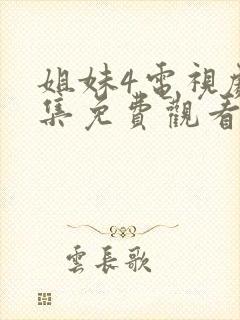 姐妹4電視劇
集免費觀看
雲長歌